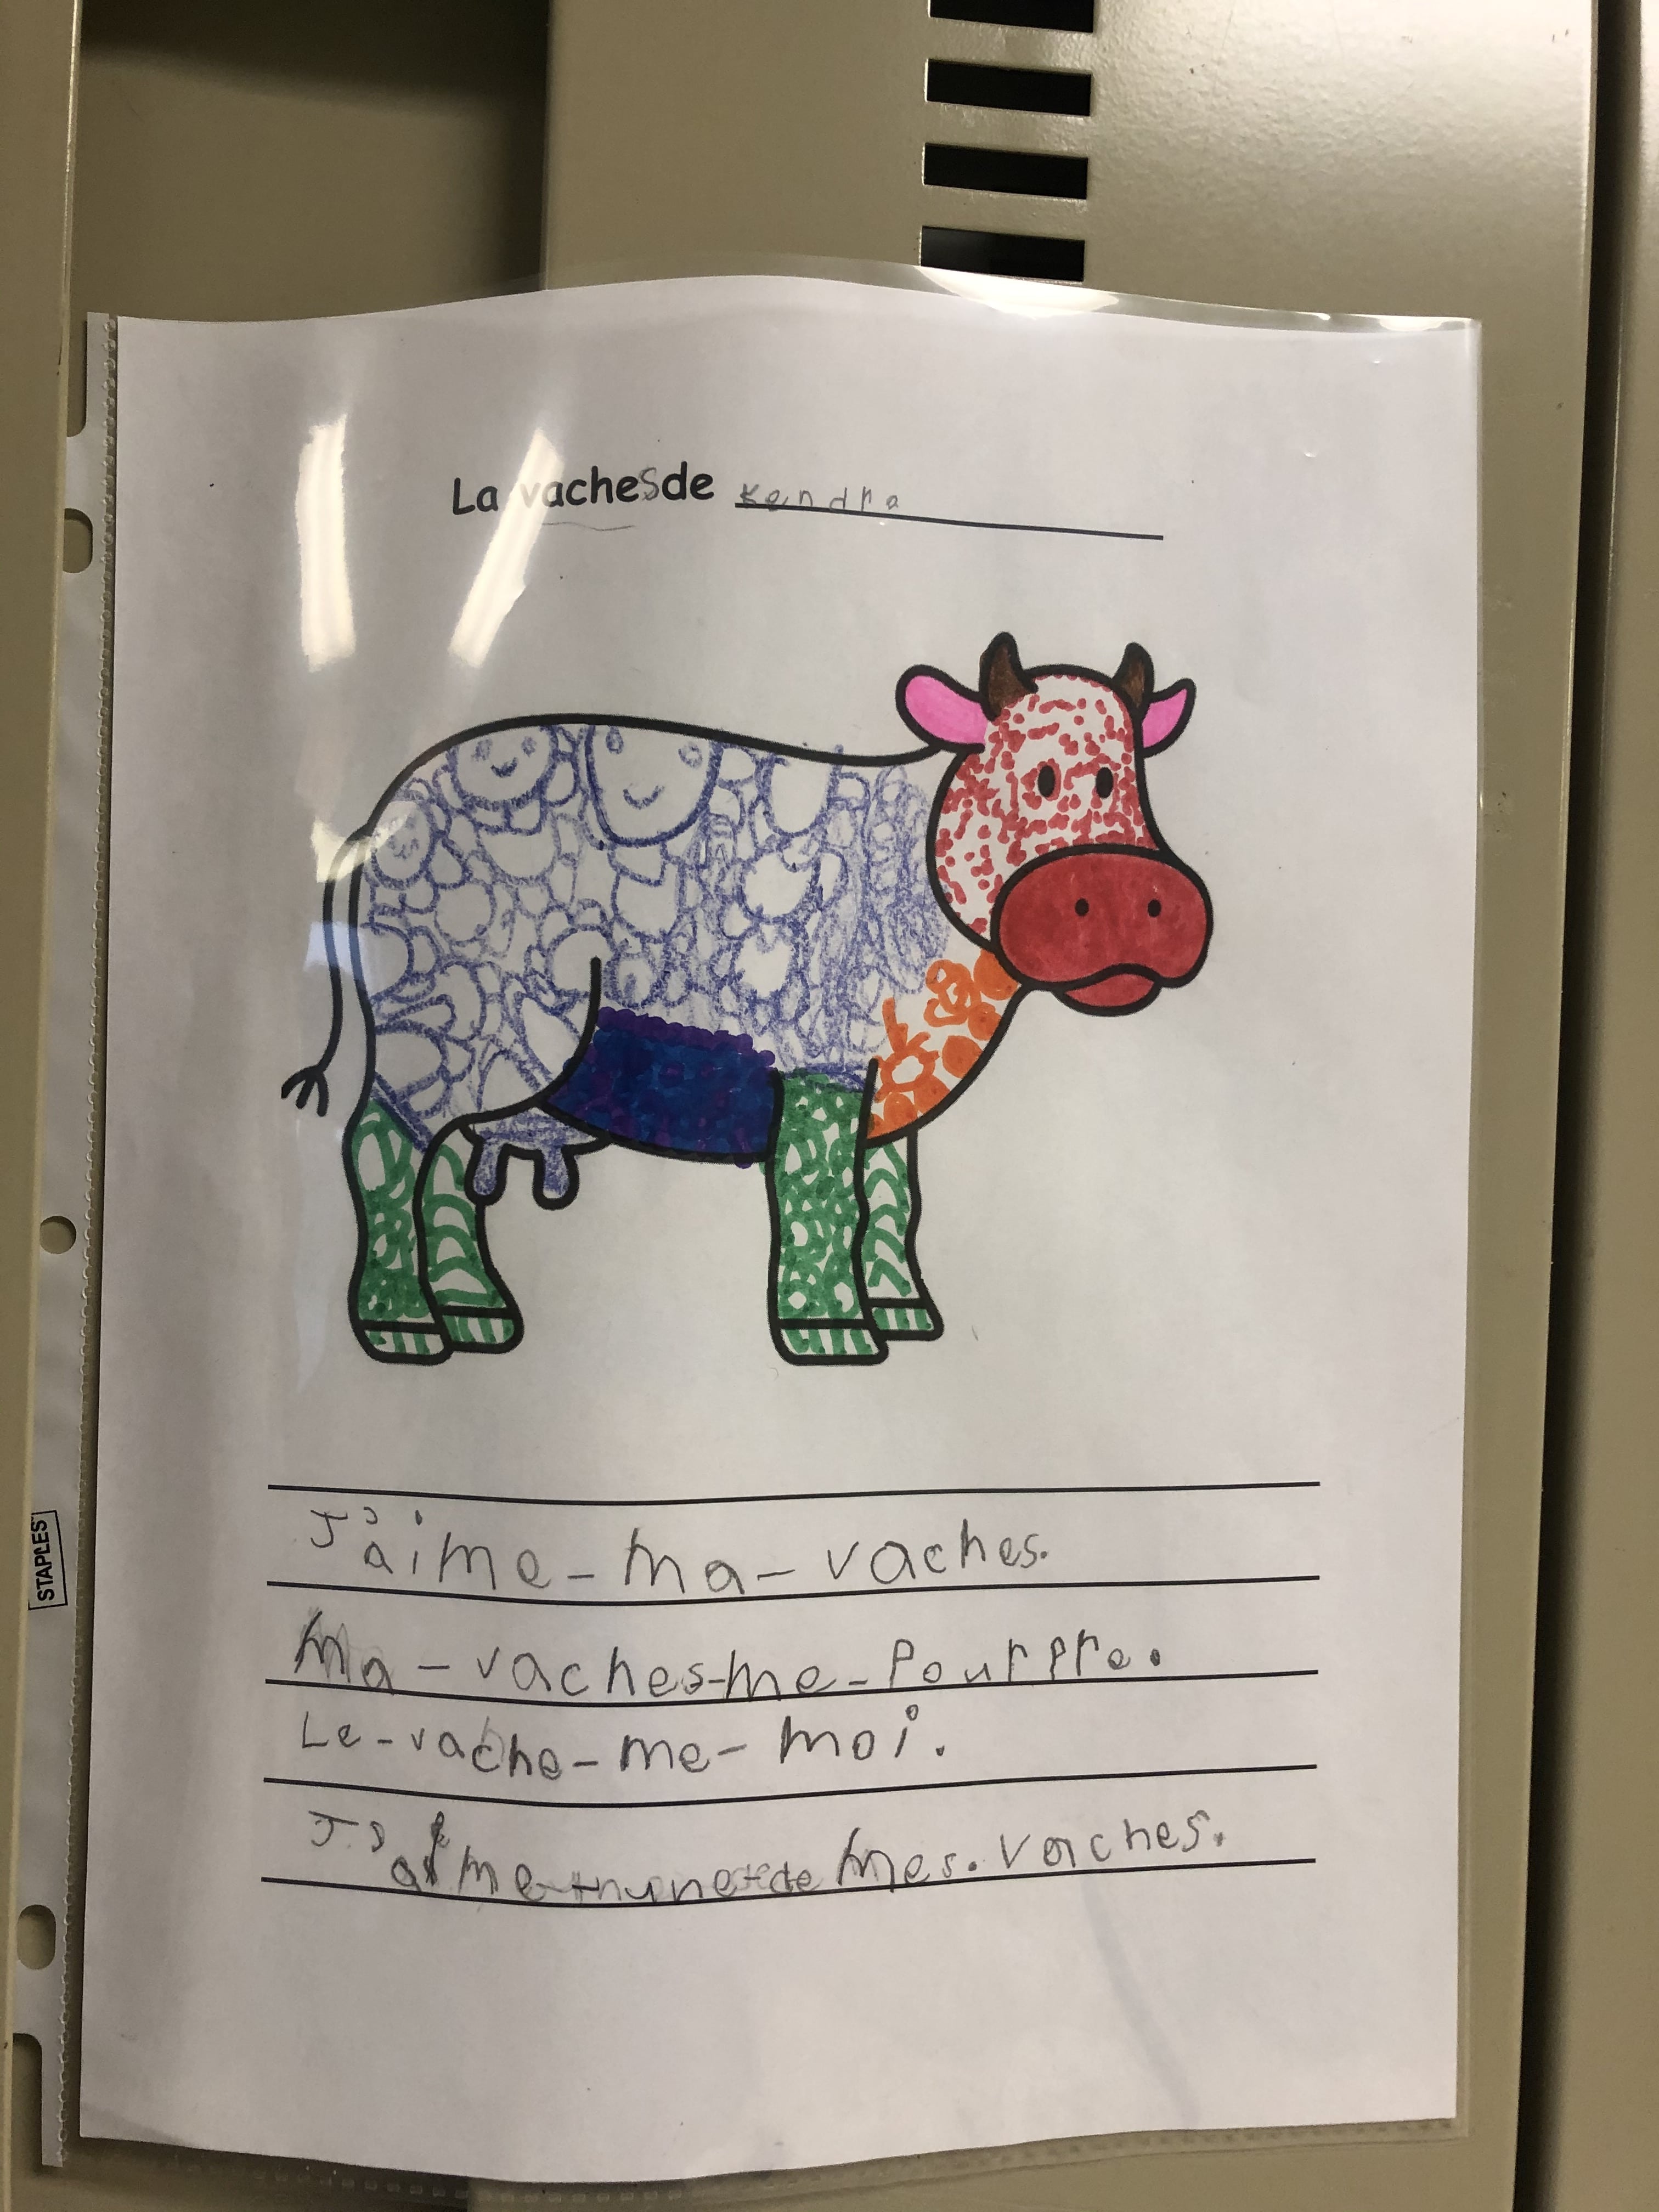 La vaches de Kendra
J'aime-ma-vaches.
Ma-vaches-me-Pourpre.
Le-vache-me-moi.
J'aime mes. vaches.
STAPLES